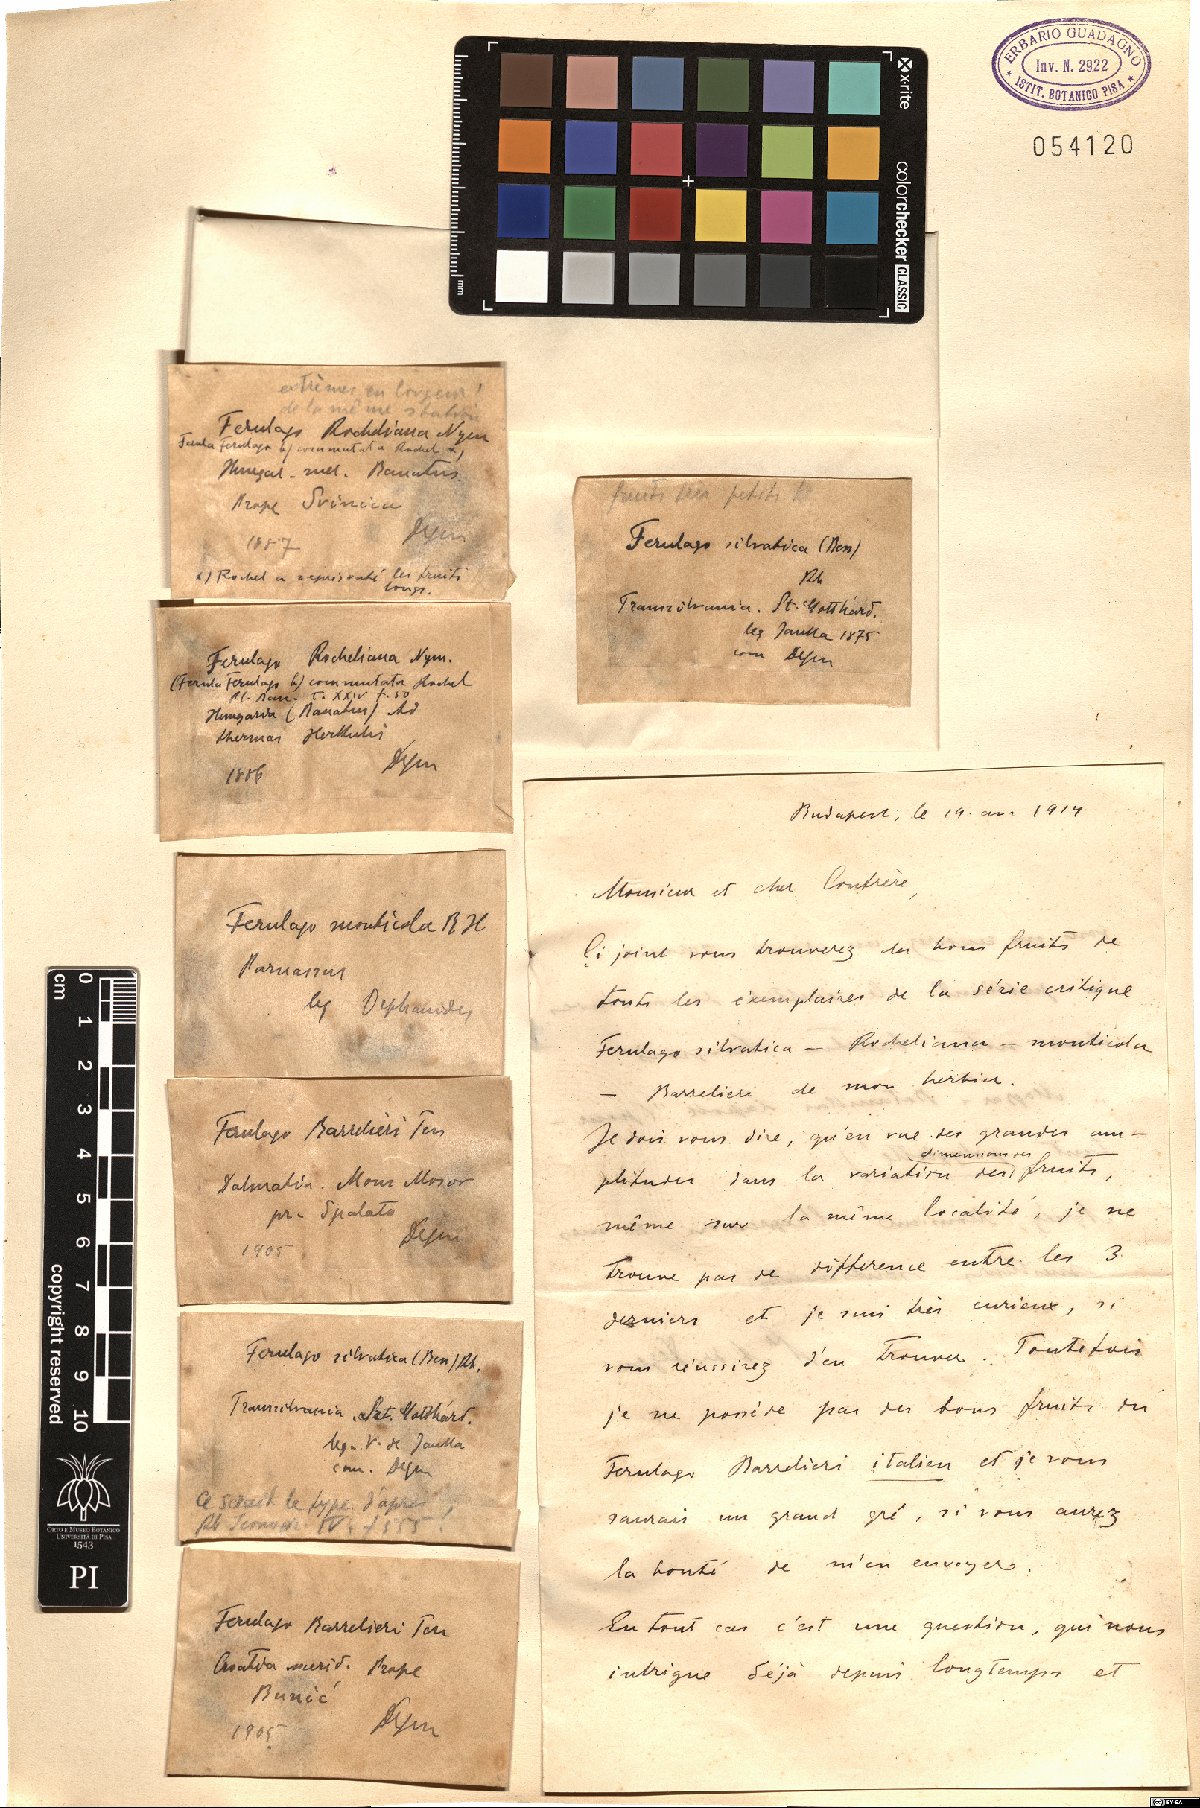 ERBARIO GUADAGNO
Inv. N. 2922
ISTIT. BOTANICO PISA
054120
x-rite
colorchecker CLASSIC
mm
extrêmes en longueur!
de la même station
Ferulago Rocheliana Nym
Ferula Ferulago b) commutata Rochel x)
Hungar. mer. Banatus
Prope Svinica
1887 Degen
x) Rochel a représenté les fruits
longs.
Ferulago Rocheliana Nym.
(Ferula Ferulago b) commutata Rochel
Pl. Ban. T. XXIV f. 50
Hungaria (Banatus) Ad
thermas Herkulis
1886 Degen
Ferulago monticola B H
Parnassus
leg Orphanides
Ferulago Barrelieri Ten
Dalmatia. Mons Mosor
pr. Spalato
1905 Degen
Ferulago silvatica (Bess) Rb.
Transsilvania. Szt. Gotthárd.
leg. V. de Janka
com. Degen
Ce serait le type d'après
Ferulago Barrelieri Ten
Croatia merid. Prope
Bunić
1905 Degen
fruits très petits
Ferulago silvatica (Bess)
Rb
Transsilvania. St. Gotthárd.
leg Janka 1875
com Degen
Budapest, le 19. 1914
Monsieur et cher Confrère,
Ci joint vous trouverez des bons fruits de
touts les exemplaires de la série critique
Ferulago silvatica — Rocheliana — monticola
— Barrelieri de mon herbier.
Je dois vous dire, qu'en vue des grandes am-
plitudes dans la variation des dimensions des fruits,
même sur la même localité, je ne
trouve pas de difference entre les 3
derniers et je suis très curieux, si
vous réussirez d'en trouver. Toutefois
je ne possède pas des bons fruits du
Ferulago Barrelieri italien et je vous
saurais un grand gré, si vous aurez
la bonté de m'en envoyer.
En tout cas c'est une question, qui nous
intrigue déjà depuis longtemps et
cm
0
1
2
3
4
5
6
7
8
9
10
copyright reserved
ORTO E MUSEO BOTANICO
UNIVERSITÀ DI PISA
1543
PI